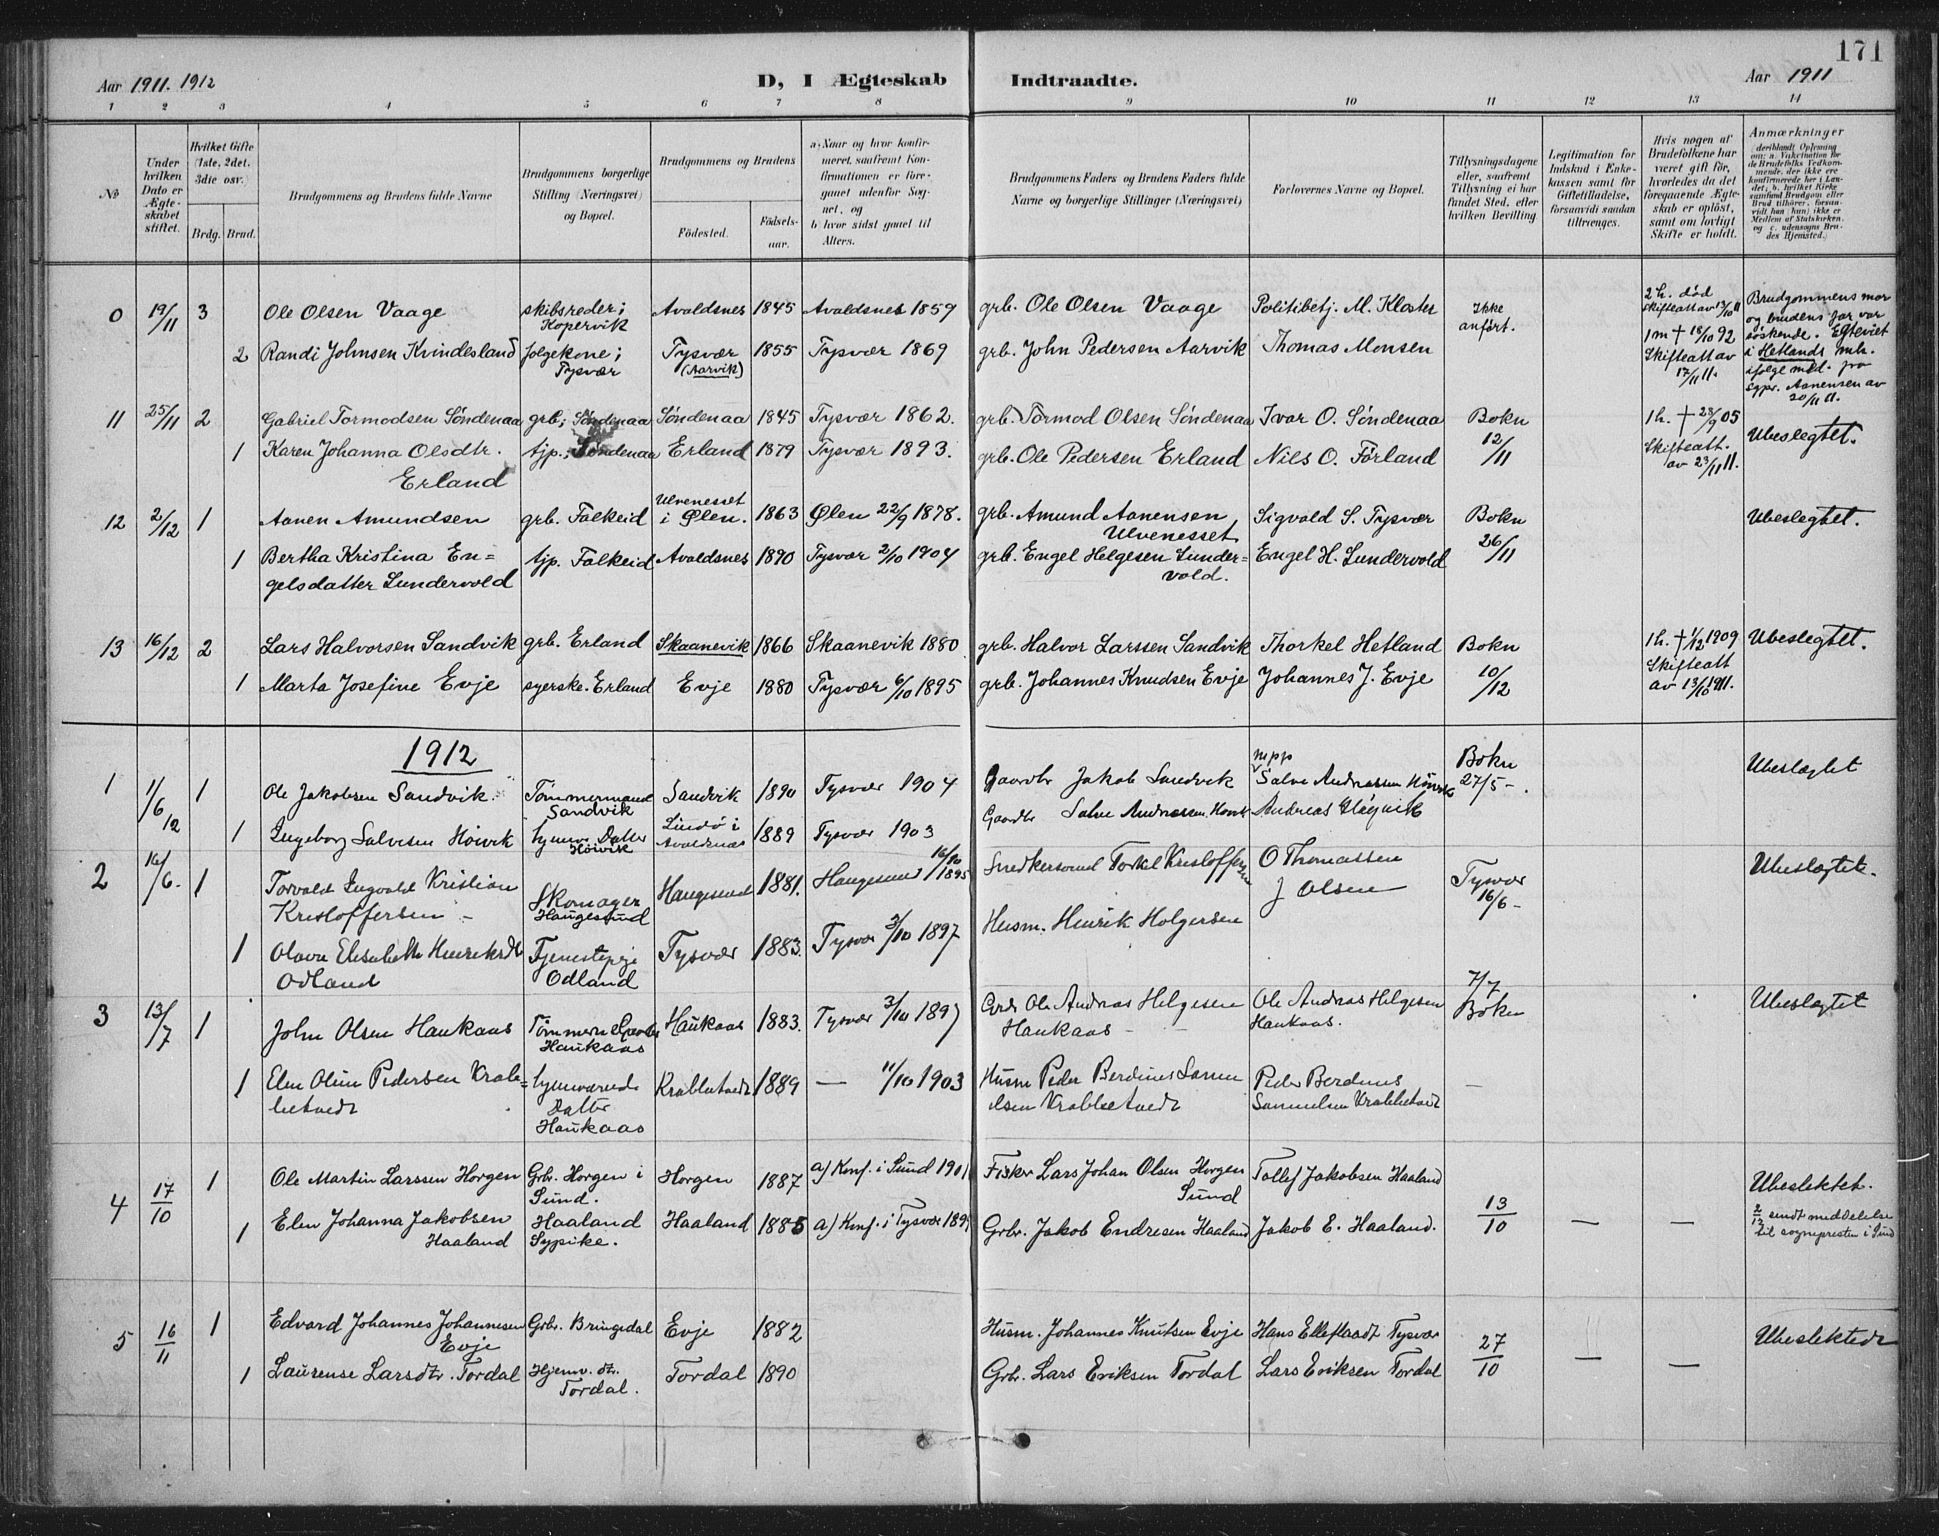 171
Aar 1911. 1912
D, I Ægteskab
Indtraadte.
Aar 1911
1 2 3 4 5 6 7 8 9 10 11 12 13 14
№
Under hvilken Dato er Ægteskabet stiftet.
Hvilket Gifte (1ste, 2det, 3die osv.
Brdg. Brud.
Brudgommens og Brudens fulde Navne
Brudgommens borgerlige Stilling (Næringsvei) og Bopæl.
Brudgommens og Brudens
Födested.
Födselsaar.
a) Naar og hvor konfirmeret, saafremt Konfirmationen er foregaaet udenfor Sognet, og
b) hvor sidst gaaet til Alters.
Brudgommens Faders og Brudens Faders fulde Navne og borgerlige Stillinger (Næringsvei)
Forlovernes Navne og Bopæl.
Tillysningsdagene eller, saafremt Tillysning ei har fundet Sted, efter hvilken Bevilling.
Legitimation for Indskud i Enkekassen samt for Giftetilladelse, forsaavidt saadan tiltrænges.
Hvis nogen af Brudefolkene har været gift för, hvorledes da det foregaaende Ægteskab er oplöst, samt om lovligt Skifte er holdt.
Anmærkninger (deriblandt Oplysning om: a. Vakcination for de Brudefolks Vedkommende, der ikke ere konfirmerede her i Landet; b. hvilket Kirkesamfund Brudgom eller Brud tilhörer, forsaavidt han (hun) ikke er Medlem af Statskirken, og c. udensogns Brudes Hjemsted.)
0 19/11 3 Ole Olsen Vaage skibsreder; Kopervik Avaldsnes 1845 Avaldsnes 1859 grb. Ole Olsen Vaage Politibetj. M. Kloster Ikke anført. 2 h. død skifteatt av 13/10 11
2 Randi Johnsen Kvindesland følgekone; Tysvær Tysvær (Aarvik) 1855 Tysvær 1869 grb. John Pedersen Aarvik Thomas Monsen 1 m † 18/10 92 Skifteatt av 17/11 11.
Brudgommens mor og brudens far var søskende. Egteviet i Hetlands mh. ifølge med. fra sgpr. Aanensen av 20/11 11.
11 25/11 2 Gabriel Tormodsen Söndenaa grb; Söndenaa Söndenaa 1845 Tysvær 1862. grb. Tormod Olsen Söndenaa Ivar O. Söndenaa Bokn 12/11 1 h. † 28/9 05 Skifteatt. av 23/11 11. Ubeslegtet.
1 Karen Johanna Olsdtr. Erland tjp.; Söndenaa Erland 1879 Tysvær 1893. grb. Ole Pedersen Erland Nils O. Förland
12 2/12 1 Aanen Amundsen grb. Falkeid Ulvenesset i Ølen. 1863 Ølen 22/9 1878. grb. Amund Aanensen Ulvenesset Sigvald S. Tysvær Bokn 26/11 Ubeslegtet.
1 Bertha Kristina Engelsdatter Lundervold tjp. Falkeid Avaldsnes 1890 Tysvær 2/10 1904 grb. Engel Helgesen Lundervold. Engel H. Lundervold
13 16/12 2 Lars Halvorsen Sandvik grb. Erland Skaanevik 1866 Skaanevik 1880 grb. Halvor Larssen Sandvik Thorkel Hetland Bokn 10/12 1 h. † 1/12 1909 Skifteatt av 13/10 1911. Ubeslegtet.
1 Marta Josefine Evje syerske. Erland Evje 1880 Tysvær 6/10 1895 grb. Johannes Knudsen Evje Johannes J. Evje
1912
1 1/6 12 1 Ole Jakobsen Sandvik. Tömmermand Sandvik Sandvik 1890 Tysvær 1904 Gaardbr Jakob Sandvik mpp Salve Andreassen Höivik Bokn 27/5 -. Ubeslægtet
1 Ingeborg Salvesen Höivik hjemv. Datter Höivik Lindö i Avaldsnæs 1889 Tysvær 1903 Gaardbr Salve Andreassen Andreas
2 16/6. 1 Torvald Ingvald Kristian Kristoffersen - Skomager Haugesund Haugesund 1881. Haugesund 16/10 1895 Snedkersvend Torkel Kristoffersen O Thomassen Tysvær 16/6 - Ubeslægtet.
J Olsen
1 Olava Elisabeth Henriksdtr Odland Tjenestepige Odland Tysvær 1883. Tysvær 3/10 1897 Husm. Henrik Holgersen
3 13/7 1 John Olsen Haukaas Haukaas Haukaas 1883. Tysvær 3/10 1897 Ole Andreas Helgesen Haukaas - Ole Andreas Helgesen Haukaas. 7/7 Bokn Ubeslægtet
1 Elen Oline Pedersen Krabbetvedt hjemværende Datter Haukaas Krabbetvedt 1889 — 11/10 1903 Husm Peder Berdines Samuelsen Krabbetvedt Peder Berdines Samuelsen Krabbetvedt -
4 17/10 1 Ole Martin Larssen Horgen Grbr. Horgen i Sund. Horgen 1887 a) Konf. i Sund 1901 Fisker Lars Johan Olsen Horgen Sund Tollef Jakobsen Haaland 13/10 — — Ubeslektet.
2/12 sendt meddelelse til sognepresten i Sund
1 Elen Johanna Jakobsen Haaland Haaland Sypike. Haaland 1885 a) Konf. i Tysvær 189 Grbr. Jakob Endresen Haaland Jakob E. Haaland.
5 16/11 1 Edvard Johannes Johannesen Evje Grbr. Bringedal Evje 1882 Husm. Johannes Knutsen Evje Hans Elleflaadt Tysvær 27/10 — — Ubeslektede
1 Laurense Larsdtr. Tordal Hjemv. dtr. Tordal. Tordal 1890 Grbr. Lars Eriksen Tordal Lars Eriksen Tordal